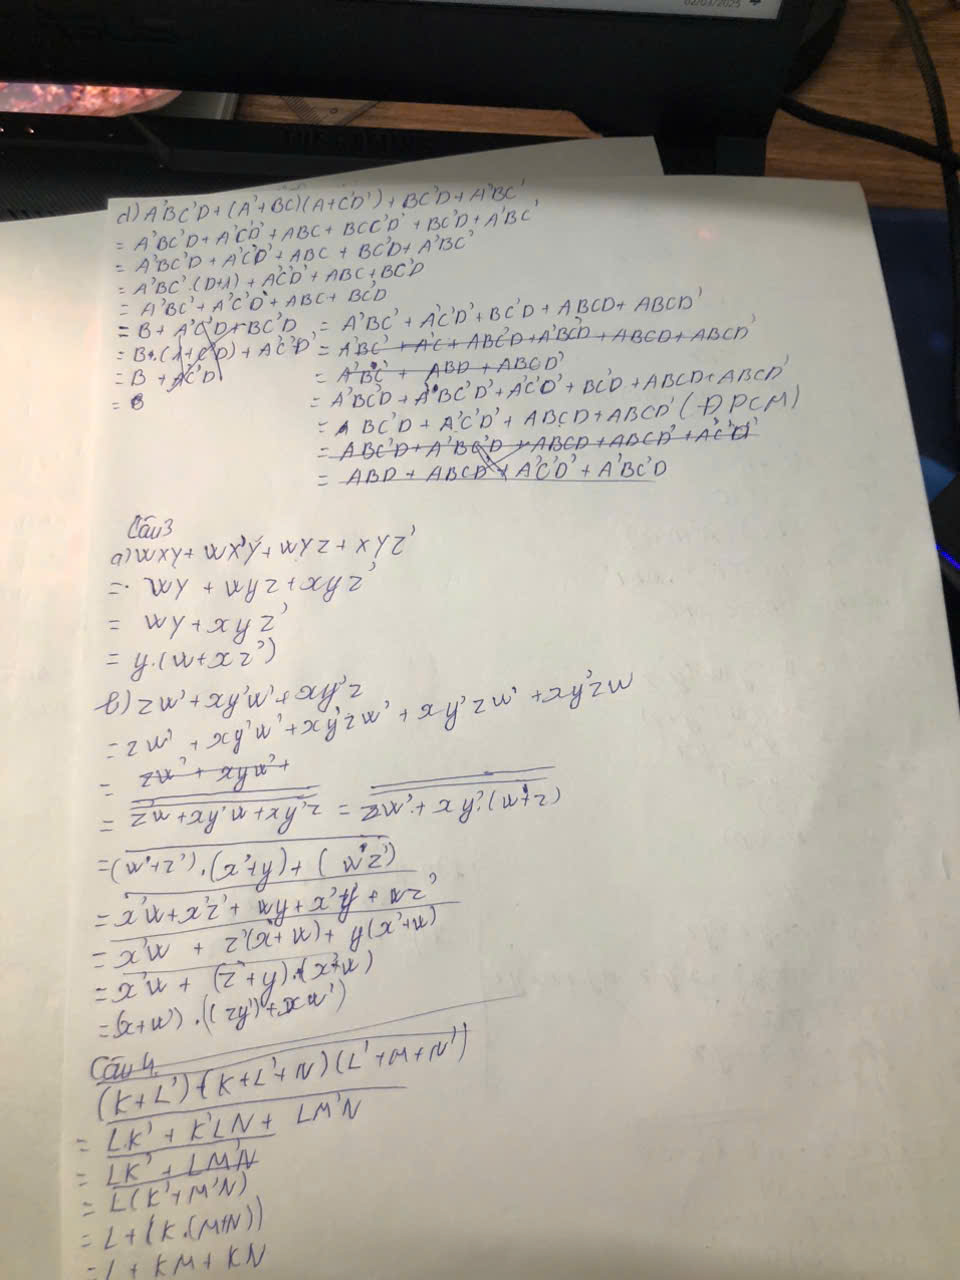 02/03/2025
d) A'BC'D + (A'+BC)(A+C'D') + BC'D + A'BC'
= A'BC'D + A'C'D' + ABC + BCC'D' + BC'D + A'BC'
= A'BC'D + A'C'D' + ABC + BC'D + A'BC'
= A'BC'.(D+1) + A'C'D' + ABC + BC'D
= A'BC' + A'C'D' + ABC + BC'D
= B + A'C'D + BC'D
= B.(1+C'D) + A'C'D'
= B + A'C'D
= B
= A'BC' + A'C'D' + BC'D + ABCD + ABCD'
= A'BC' + A'C + ABC'D + A'BC'D + ABCD + ABCD'
= A'BC' + ABD + ABCD'
= A'BC'D + A'BC'D' + A'C'D' + BC'D + ABCD + ABCD'
= A BC'D + A'C'D' + ABCD + ABCD' (ĐPCM)
= ABC'D + A'BC'D + ABCD + ABCD' + A'C'D'
= ABD + ABCD' + A'C'D' + A'BC'D
Câu 3
a) wxy + wx'y + wyz + xyz'
= wy + wyz + xyz'
= wy + xyz'
= y.(w+xz')
b) zw' + xy'w' + xy'z
= zw' + xy'w' + xy'zw' + xy'zw' + xy'zw
= zw' + xyw' +
= zw + xy'w + xy'z = zw' + xy'.(w'+z)
= (w+z').(x'+y) + (wz')
= x'w + x'z' + wy + x'y + wz'
= x'w + z'(x'+w) + y(x'+w)
= x'w + (z'+y).(x'+w)
= (x+w').((zy') + xw')
Câu 4.
(K+L')+(K+L'+N)(L'+M+N')
= LK' + K'LN + LM'N
= LK' + LM'N
= L(K'+M'N)
= L + (K.(M+N))
= L + KM + KN